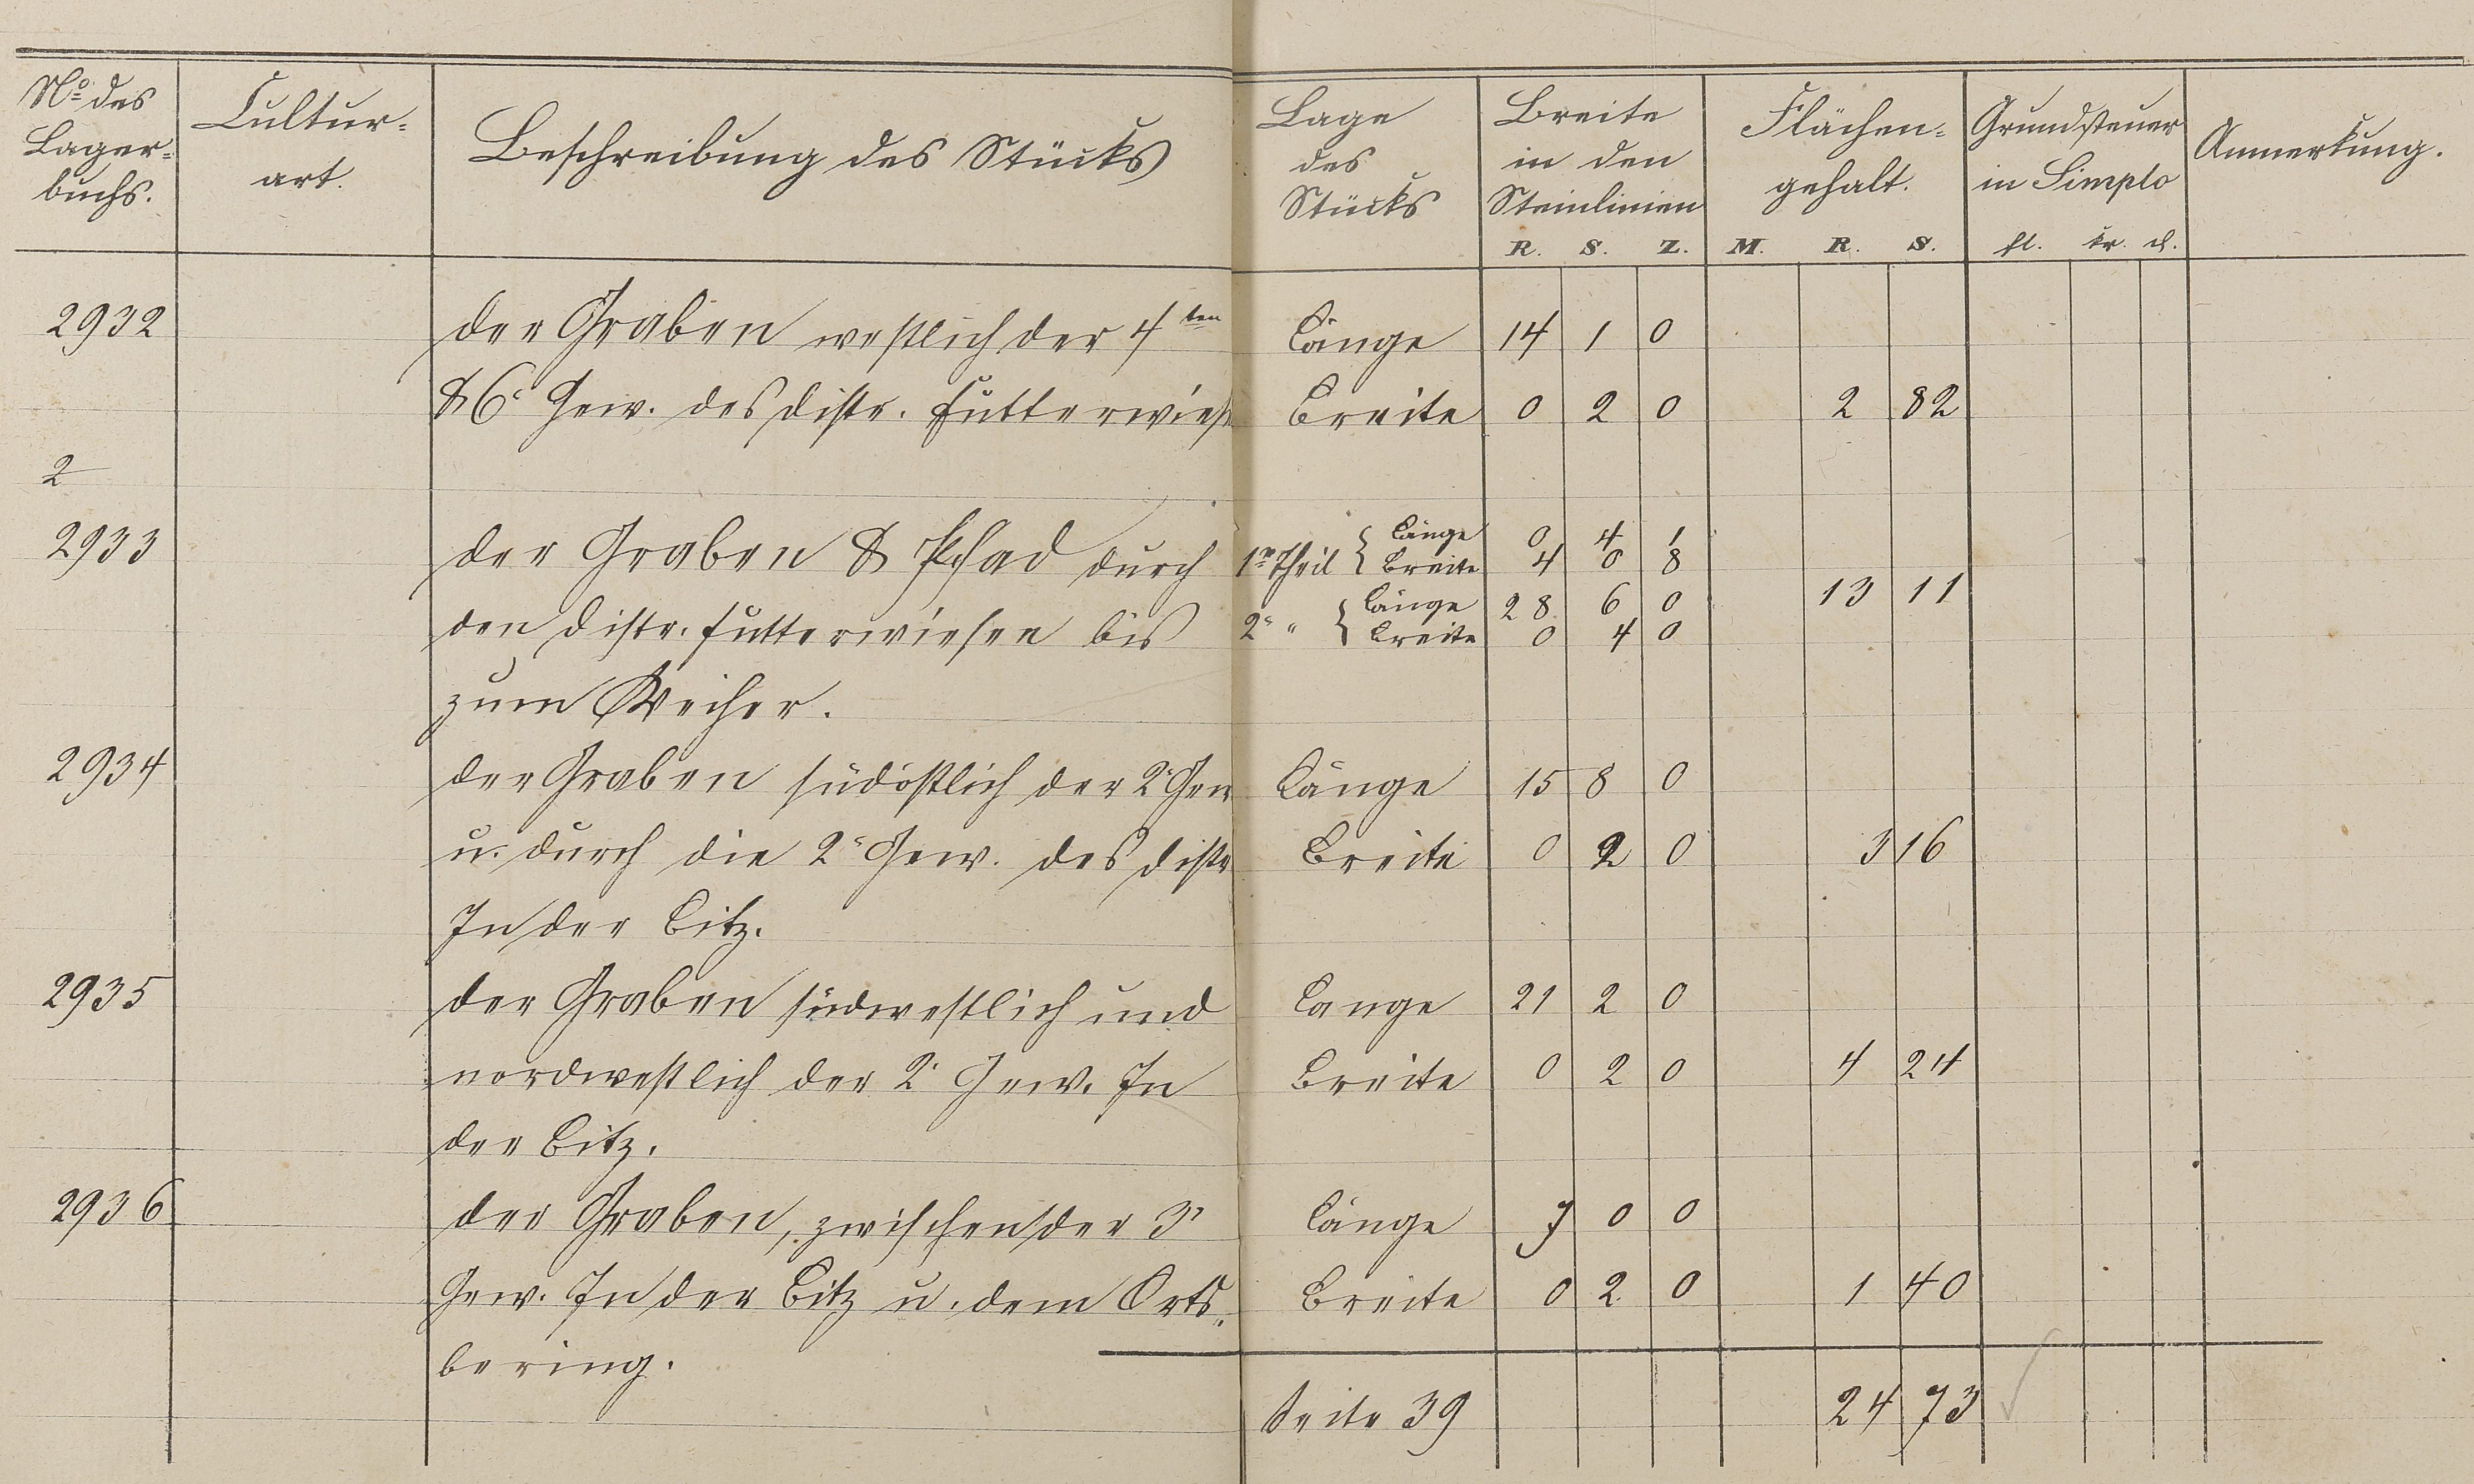 No. des Lager- buchs.
Cultur- art.
Beschreibung des Stücks
Lage des Stücks
Breite in den Steinlinien
R. S. Z.
Flächen- gehalt.
M. R. S.
Grundsteuer in Simplo
fl. kr. d.
Anmerkung.
2932 der Graben westlich der 4ten Länge 14 1 0
& 6r Gew. des Distr. Futterwiese Breite 0 2 0 2 82
2
2933 der Graben & Pfad durch 1r Theil { Länge 0 4 1
Breite 4 0 8
den Distr. Futterwiesen bis 2r " { Länge 28 6 0 13 11
Breite 0 4 0
zum Weiher.
2934 der Graben südöstlich der 2r Gew Länge 15 8 0
u. durch die 2r Gew. des Distr Breite 0 2 0 3 16
In der Bitz.
2935 der Graben südwestlich und Lange 21 2 0
nordwestlich der 2r Gew. In Breite 0 2 0 4 24
der Bitz.
2936 der Graben, zwischen der 3r Länge 7 0 0
Gew. In der Bitz u. dem Orts- Breite 0 2 0 1 40
bering.
Seite 39 24 73